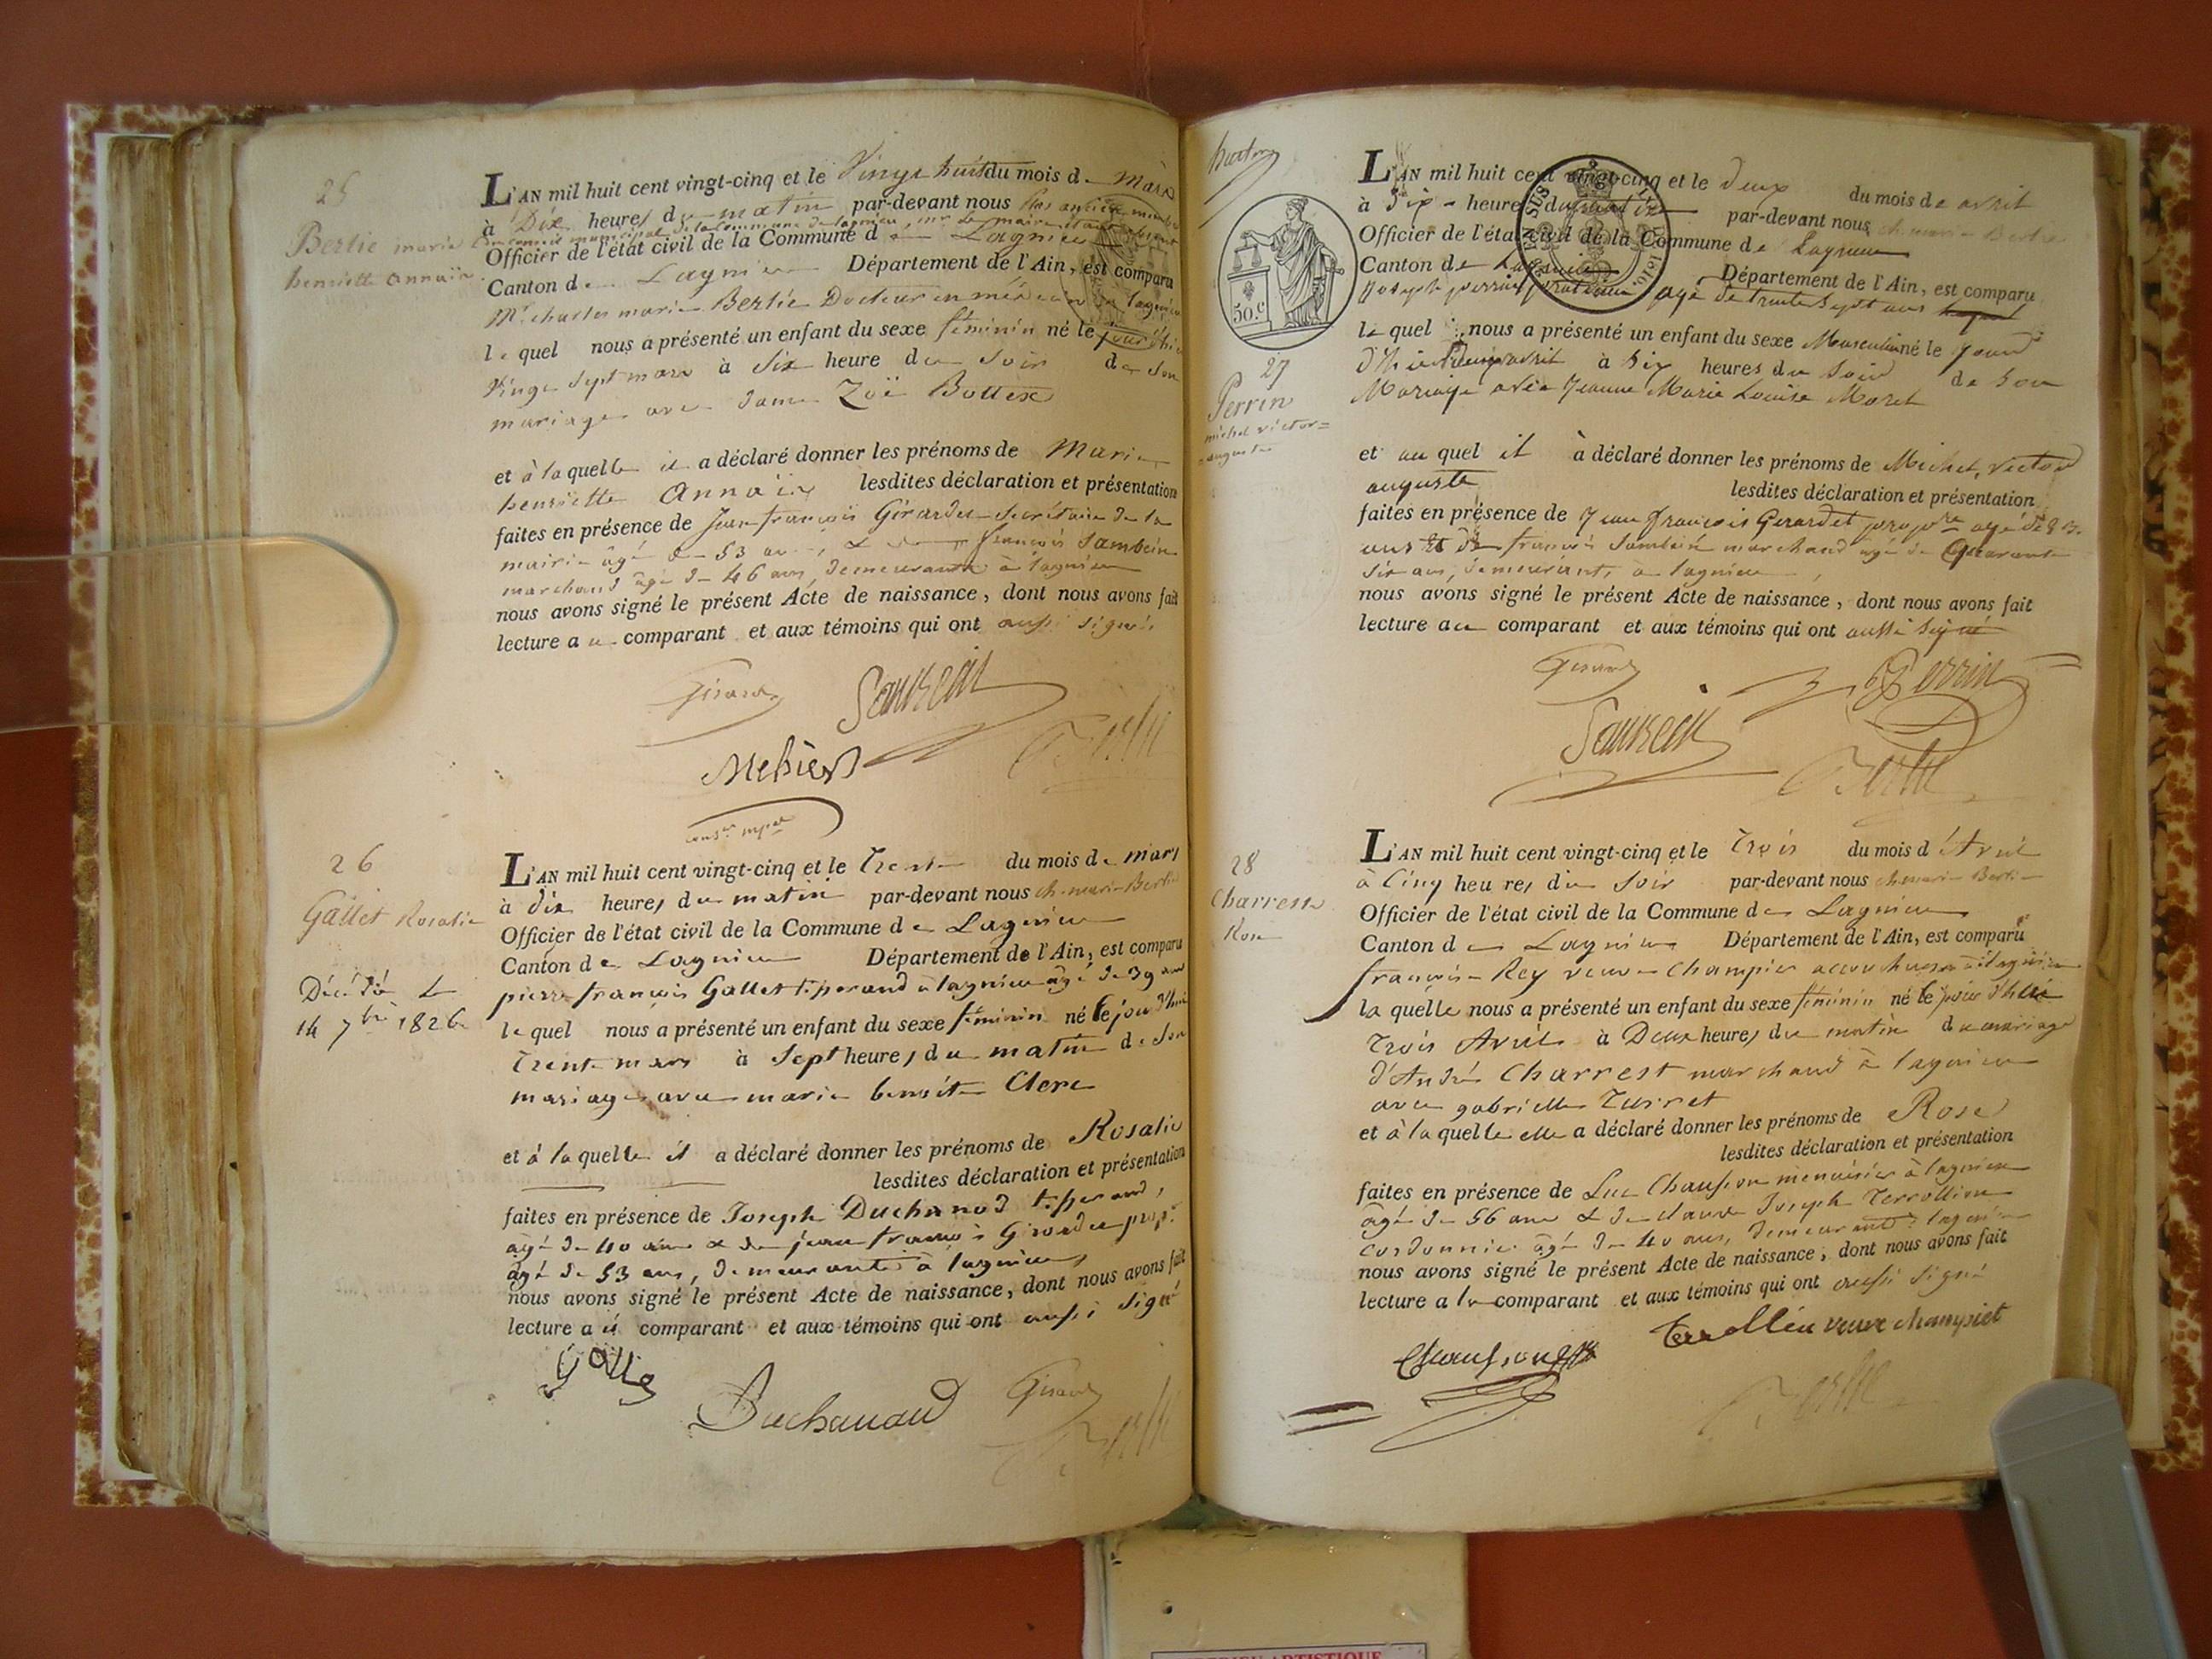 25
Bertie marie
henriette annaïs
L'AN mil huit cent vingt-cinq et le Vingt huit du mois de Mars
à Dix heures du matin par-devant nous
conseil municipal de la commune de lagnieu, mr le maire étant
Officier de l'état civil de la Commune d Lagnieu
Canton de Lagnieu Département de l'Ain, est comparu
Mr charles marie Bertie Docteur en médecin à lagnieu
le quel nous a présenté un enfant du sexe féminin né le jour d'hier
Vingt Sept mars à Six heure du Soir de Son
mariage avec Dame Zoë Bottex
et à laquelle il a déclaré donner les prénoms de Marie
henriette Annaïs lesdites déclaration et présentation
faites en présence de Jean françois Girardet Secrétaire de la
mairie âgé de 53 ans, & de françois Sambein
marchand âgé de 46 ans, demeurants à lagnieu
nous avons signé le présent Acte de naissance, dont nous avons fait
lecture au comparant et aux témoins qui ont aussi signés
Girard Sambein
Bertie
26
Gallet Rosalie
Décédé le
14 7bre 1826
L'AN mil huit cent vingt-cinq et le Trente du mois de mars
à dix heures du matin par-devant nous ch. marie Bertie
Officier de l'état civil de la Commune de Lagnieu
Canton de Lagnieu Département de l'Ain, est comparu
pierre françois Gallet tisserand à lagnieu âgé de 39 ans
le quel nous a présenté un enfant du sexe féminin né le jour d'hui
Trente mars à Sept heures du matin de Son
mariage avec marie benoite Clerc
et à laquelle il a déclaré donner les prénoms de Rosalie
lesdites déclaration et présentation
faites en présence de Joseph Duchanod tisserand,
âgé de 40 ans & de jean françois Girardet propre
âgé de 53 ans, demeurants à lagnieu
nous avons signé le présent Acte de naissance, dont nous avons fait
lecture au comparant et aux témoins qui ont aussi signé
Galle
Duchanaud Girard
Bertie
50.C
27
Perrin
michel victor=
auguste
L'AN mil huit cent vingt-cinq et le deux du mois de avril
à Six heures du matin par-devant nous ch. marie Bertie
Officier de l'état civil de la Commune de Lagnieu
Canton de Lagnieu Département de l'Ain, est comparu
Joseph perrin agé de trente sept ans
le quel nous a présenté un enfant du sexe Masculin né le jour
d'hui deux avril à Six heures du Soir de Son
Mariage avec Jeanne Marie Louise Moret
et au quel il à déclaré donner les prénoms de Michel, victor
auguste lesdites déclaration et présentation
faites en présence de Jean François Gerardet proprre agé de 53.
ans et de françois Sambein marchand agé de Quarante
Six ans, demeurants à lagnieu,
nous avons signé le présent Acte de naissance, dont nous avons fait
lecture au comparant et aux témoins qui ont aussi signé
Girard Perrin
Sambein
Bertie
28
Charrest
Rose
L'AN mil huit cent vingt-cinq et le Trois du mois d'Avril
à Cinq heures du Soir par-devant nous ch. marie Bertie
Officier de l'état civil de la Commune de Lagnieu
Canton de Lagnieu Département de l'Ain, est comparu
françoise Rey veuve Champier accoucheuse à lagnieu
la quelle nous a présenté un enfant du sexe féminin né le jour d'hui
Trois Avril à Deux heures du matin du mariage
d'André Charrest marchand à lagnieu
avec gabrielle Turret
et à laquelle elle a déclaré donner les prénoms de Rose
lesdites déclaration et présentation
faites en présence de Luc Chausson menuisier à lagnieu
âgé de 56 ans & de claude Joseph Terrollion
cordonnier âgé de 40 ans, demeurants à lagnieu
nous avons signé le présent Acte de naissance, dont nous avons fait
lecture a la comparant et aux témoins qui ont aussi signé
veuve champiet
Bertie